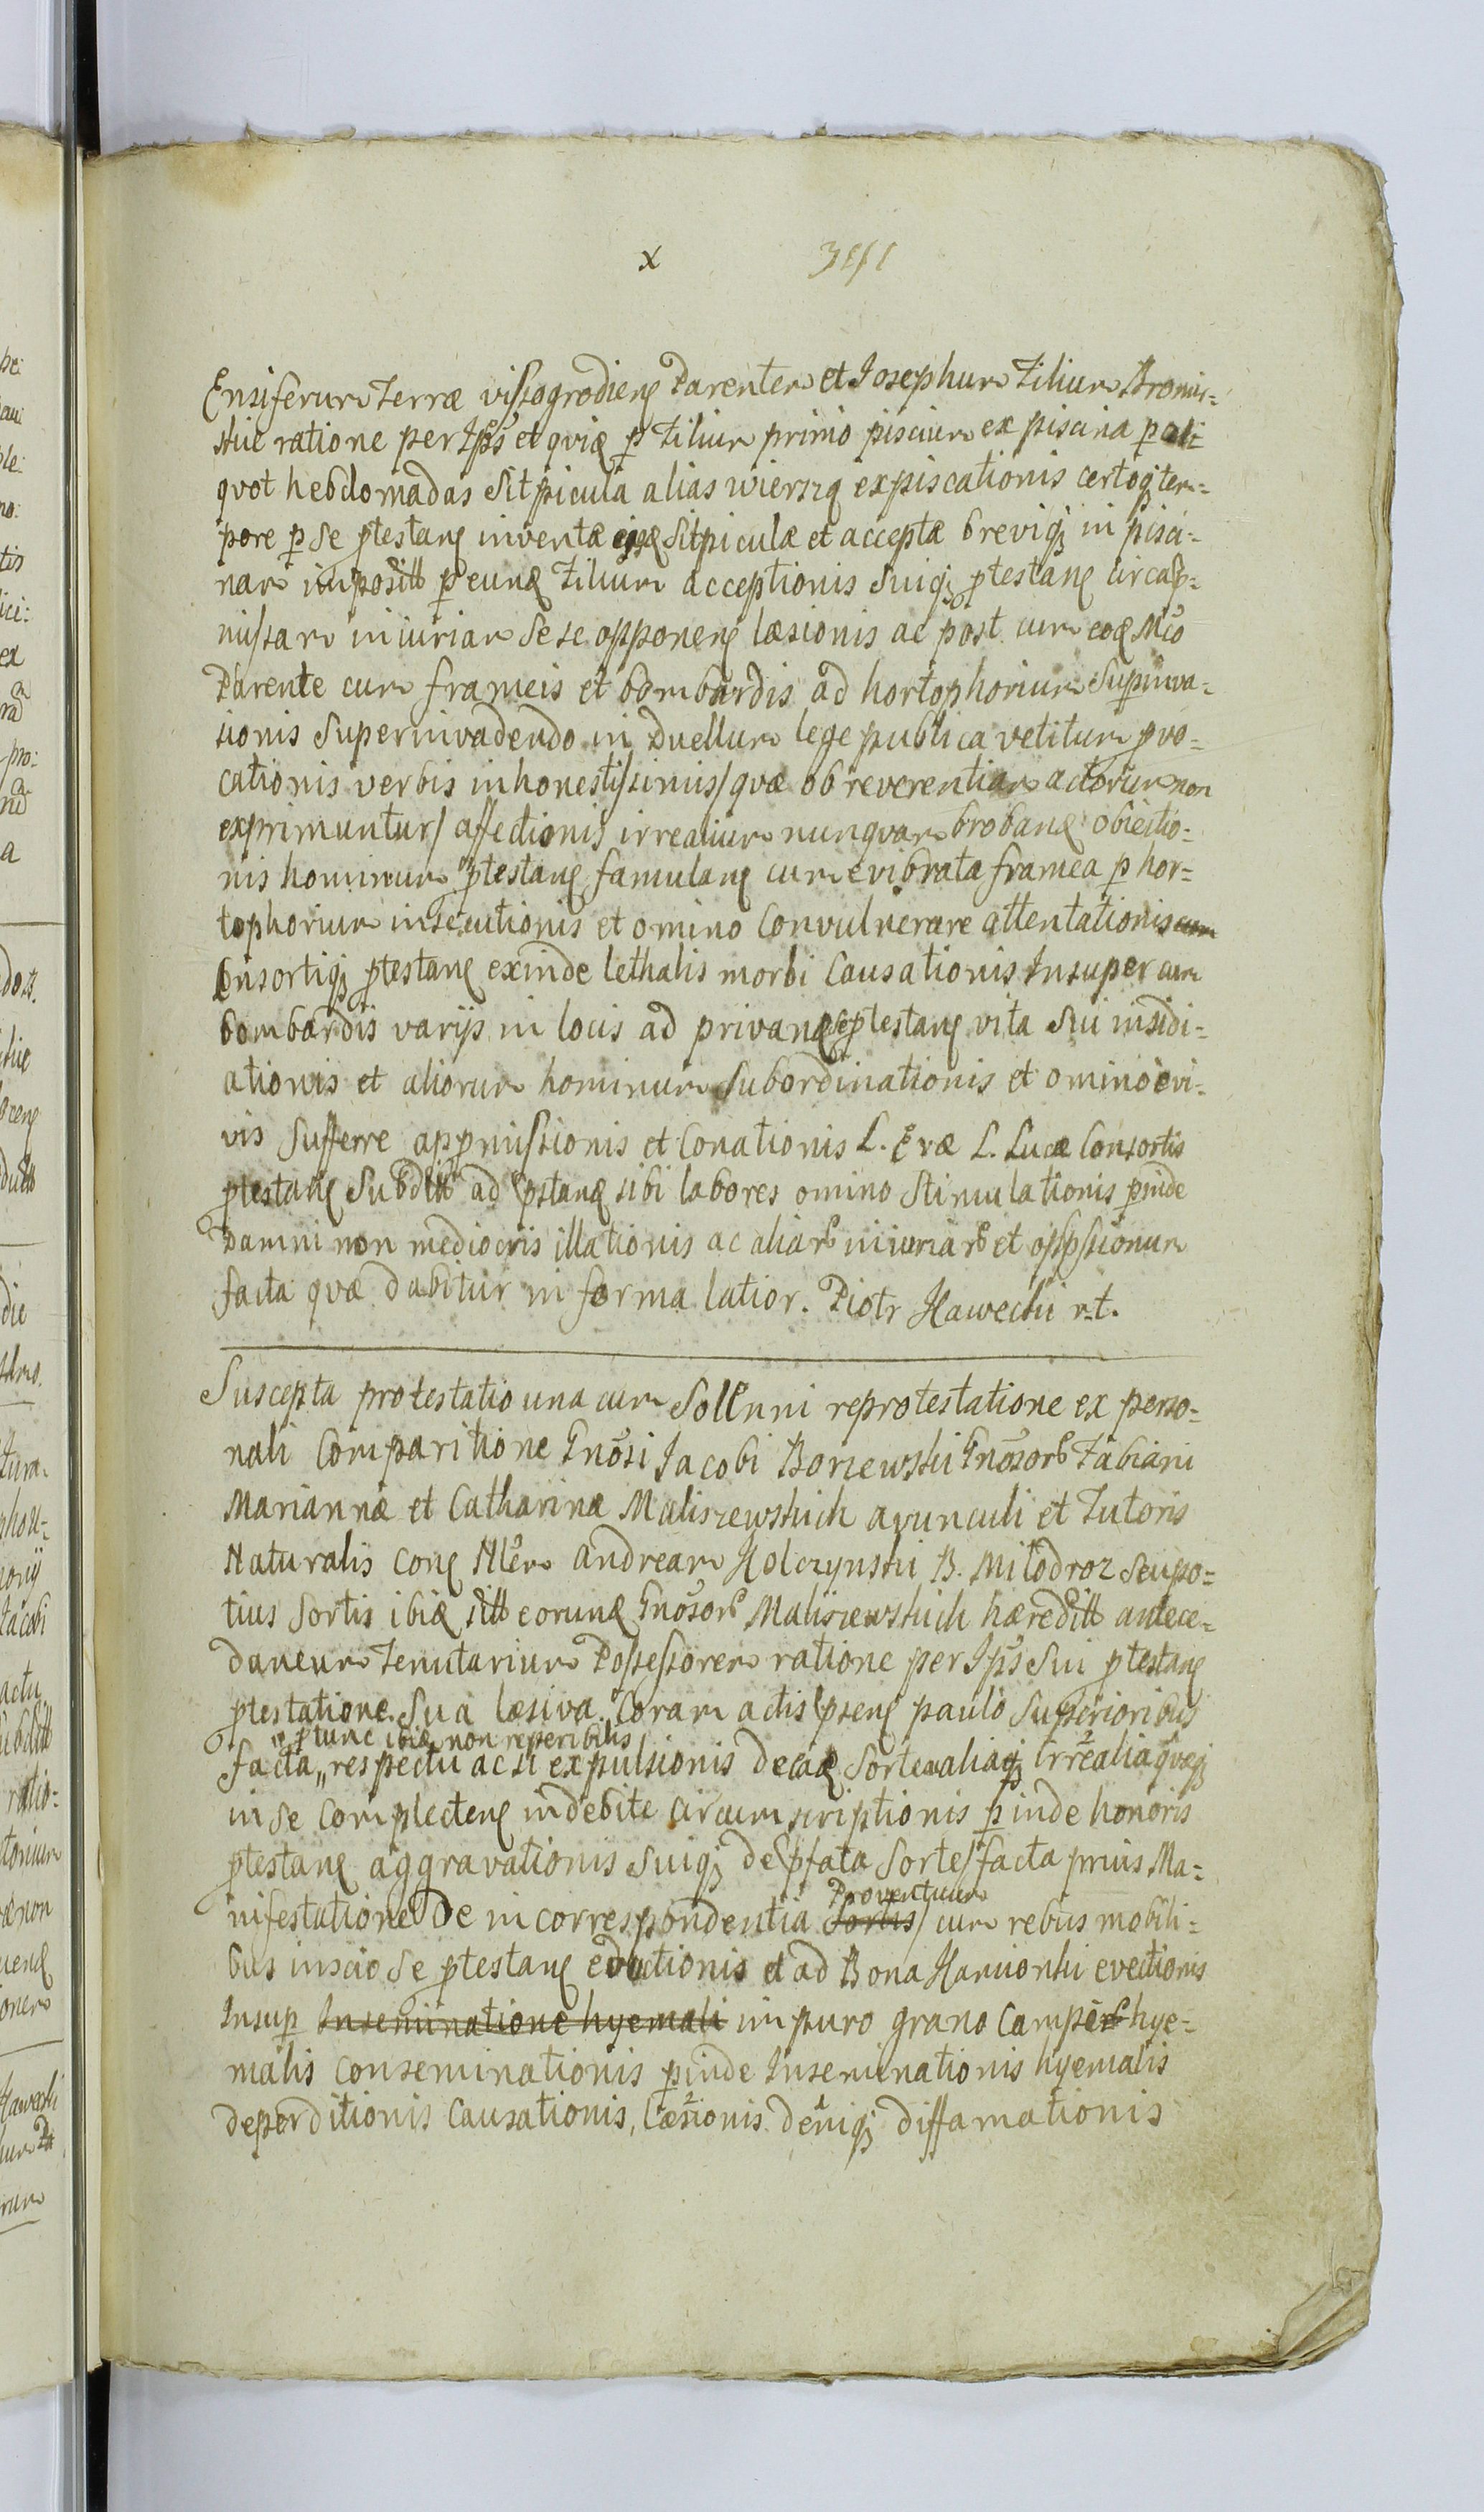 x 341
Ensiferum Terræ Vissogrodiens Parentem et Josephum Filium Bromir-
skie ratione per Ipsos et quidem p Filium primo piscium ex piscina p ali-
quot hebdomadas Sitpicula alias wierszą expiscationis certoq; tem-
pore p se ptestan inventæ ejusdem Sitpiculæ et acceptæ breviq; in pisci-
nam impositæ p eundem Filium acceptionis suiq; ptestan circa p-
missam iniuriam sese opponen læsionis ac post cum eodem Mco
Parente cum frameis et bombardis ad hortophorium Superinva-
sionis superinvadendo in Duellum lege publica vetitum pvo-
cationis verbis inhonestissimis/quæ ob reverentiam actorum non
exprimuntur/ affectionis irrealium nunquam proband obiectio-
nis hominum ptestan famulan cum evibrata framea p hor-
tophorium insecutionis et omino convulnerare attentationis cum
Consortiq; ptestan exinde lethalis morbi causationis Insuper cum
bombardis varijs in locis ad privand se ptestan vita sui insidi-
ationis et aliorum hominum subordinationis et omino e vi-
vis sufferre appromissionis et Conationis L. Evæ L. Lucæ Consortis
ptestan Subditæ ad pstand sibi labores omino stimulationis pinde
Damni non mediocris illationis ac aliar iniuriar et oppssionum
facta quæ dabitur in forma latior. Piotr Hawecki r.t.
Suscepta protestatio una cum Solenni reprotestatione ex perso-
nali Comparitione Gnosi Jacobi Borzewski Gnosor Fabiani
Mariannæ et Catharinæ Maliszewskich avunculi et Tutoris
Naturalis con Nlem Andream Holczynski B. Milodroz seu po-
tius Sortis ibidem sitt eorund Gnosor Maliszewskich hæreditt antece-
daneum Tenutarium Possessorem ratione per Ipsos sui ptestan
ptestatione sua læsiva coram actis psen paulo superioribus
" p tunc ibid non reperibilis
facta " respectu ac si expulsionis de ead Sorte aliaq; irrealia quæq;
in se complecten indebite circumscriptionis pinde honoris
ptestan aggravationis suiq; de pfata Sorte/facta prius Ma-
Proventuum
nifestatione De incorrespondentia Sortis/ cum rebus mobili-
bus inscio se ptestan eductionis et ad Bona Karnionki evectionis
Insup Inseminatione hyemali impuro grano Campi hye-
malis conseminationis pinde Inseminationis hyemalis
deperditionis causationis, læsionis deniq; diffamationis